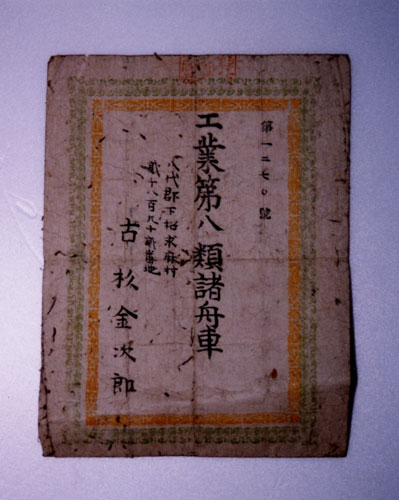 第一二七〇號
工業第八類諸舟車
八代郡下松求麻村
貳千八百九十番地
古杉金次郎